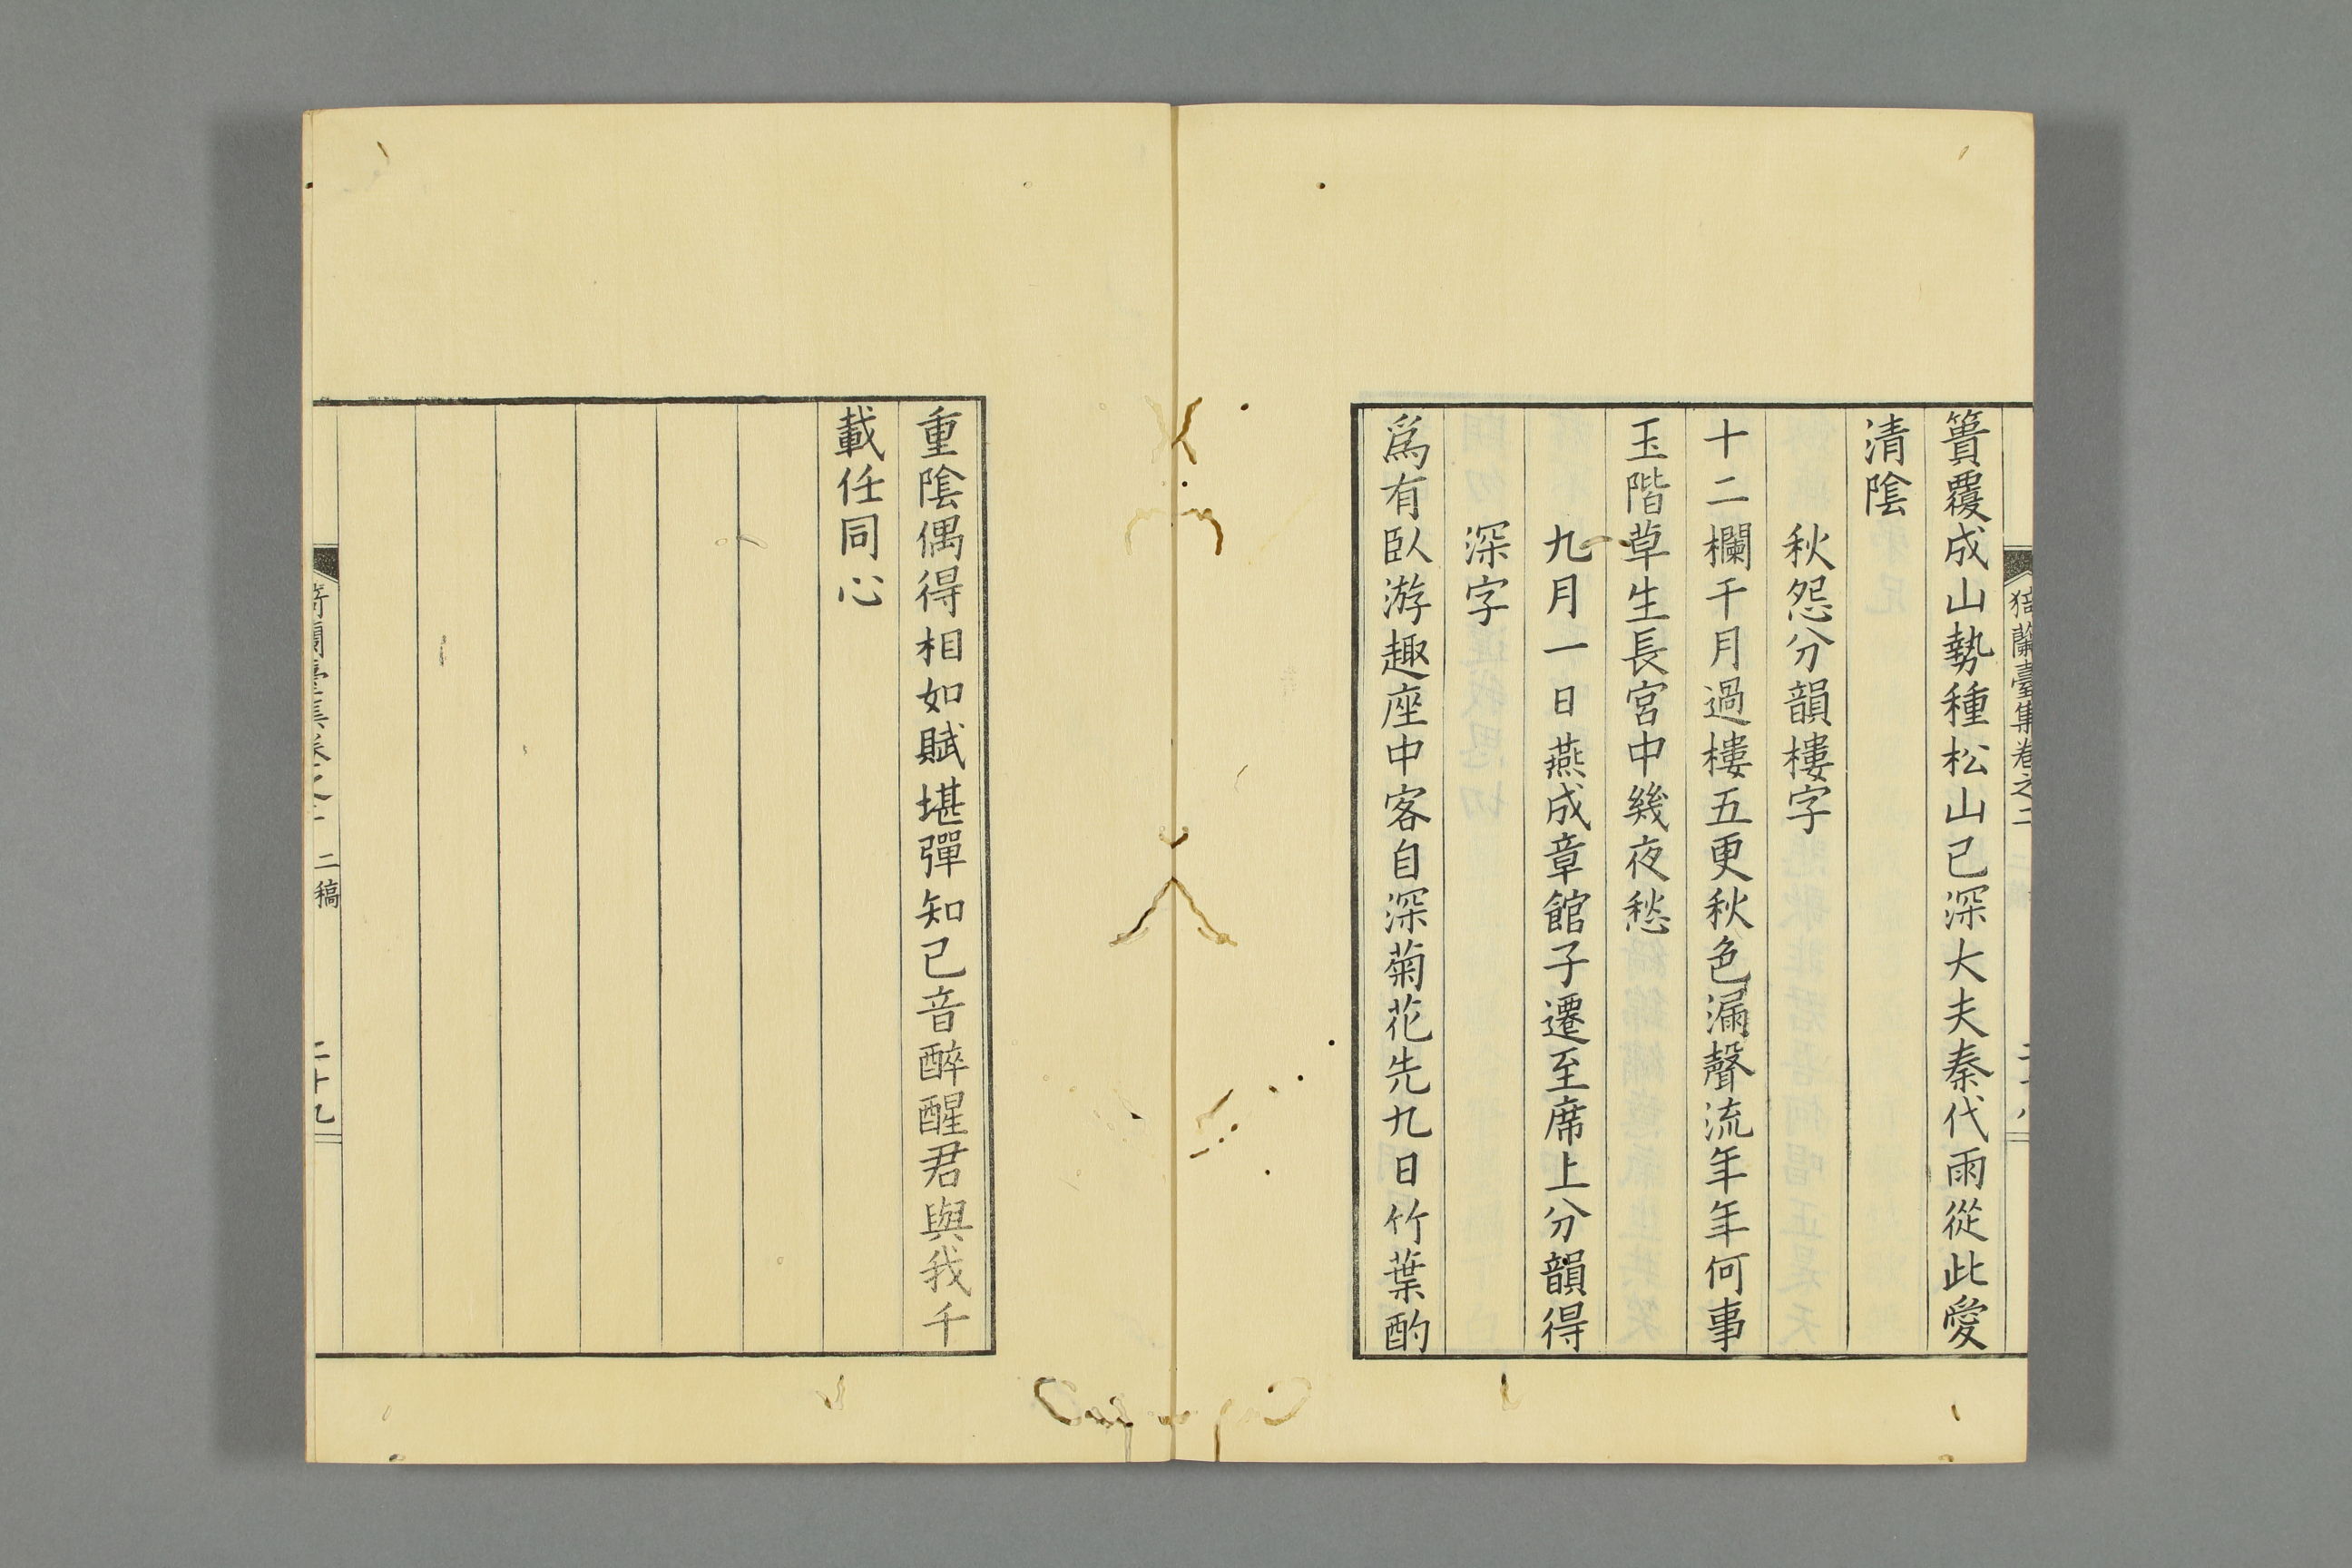 猗蘭臺集卷之二
簣覆成山勢種松山已深大夫秦代雨從此愛
清陰
秋怨分韻樓字
十二欄干月過樓五更秋色漏聲流年年何事
玉階草生長宮中幾夜愁
九月一日燕成章館子遷至席上分韻得
深字
爲有臥游趣座中客自深菊花先九日竹葉酌
重陰偶得相如賦堪彈知已音醉醒君與我千
載任同心
二稿
二十九